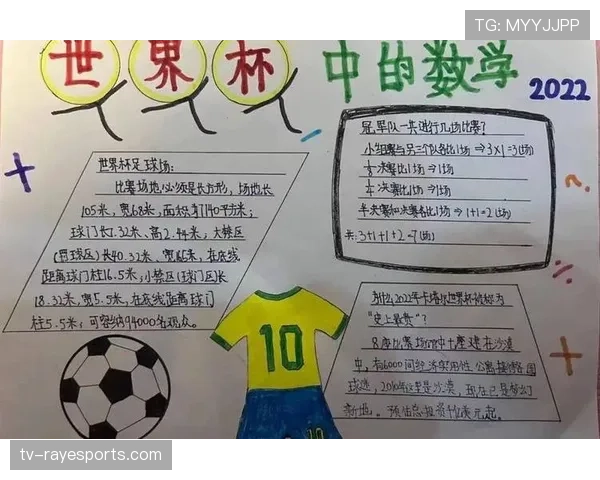 TG: MYYJJPP
世界杯中的数学
2022
世界杯足球场:
比赛场地必须是长方形,场地长
105米,宽68米,面积为7140平方米;
球门长7.32米、高2.44米;大禁区
(罚球区)长40.32米、宽16米,在底线
距离球门柱16.5米;小禁区(球门区)长
18.32米,宽5.5米,在底线距离球门
柱5.5米;可容纳94000名观众。
冠军队一共进行几场比赛?
小组赛与另三个队各比1场⇒3×1=3(场)
决赛比1场⇒1场
决赛比1场⇒1场
半决赛和决赛各比1场⇒1+1=2(场)
共:3+1+1+2=7(场)
为什么2022年卡塔尔世界杯被称为
"史上最贵"?
8座比赛场馆中七座建在沙漠
中,有6000间经济实用性公寓接待各国
球迷,2010年这里是沙漠,现在已是梦幻
新地。预估总投资
美元起。
10
10
tv-rayesports.com